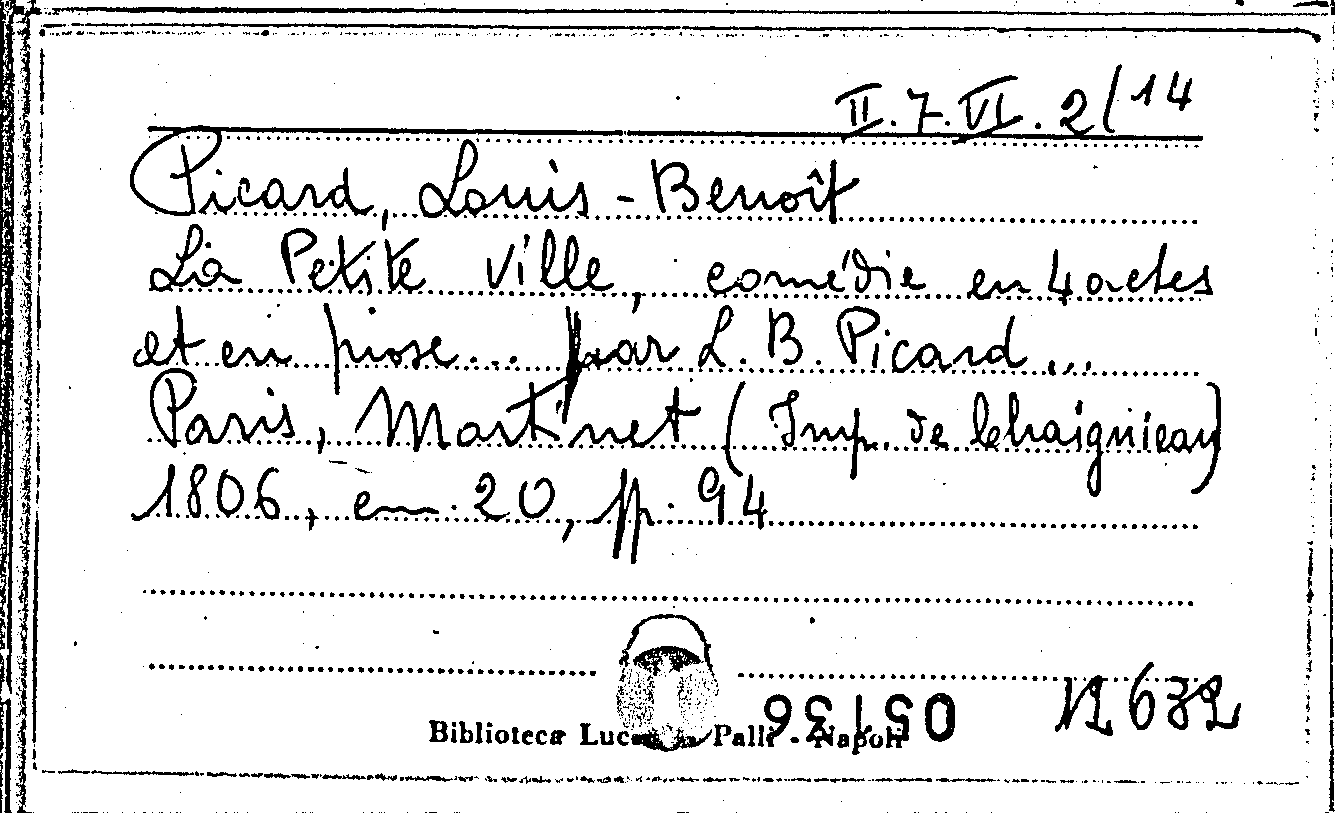 II.7.VI.2/14
Picard, Louis-Benoît
La Petite Ville, comédie en 4 actes
et en prose... par L. B. Picard...
Paris, Martinet (Imp. de Chaignieau)
1806, cm. 20, pp. 94
Biblioteca Palli - Napoli
12632